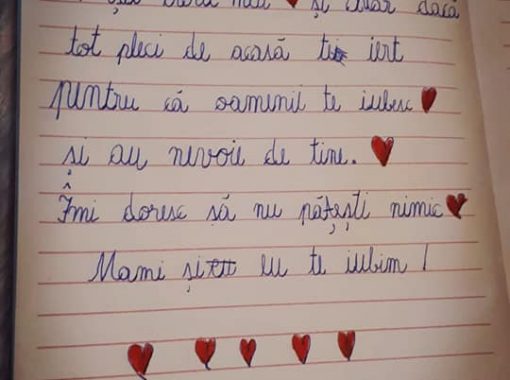 și chiar dacă
tot pleci de acasă te iert
pentru că oamenii te iubesc
și au nevoie de tine.
Îmi doresc să nu pățești nimic
Mami și eu te iubim!